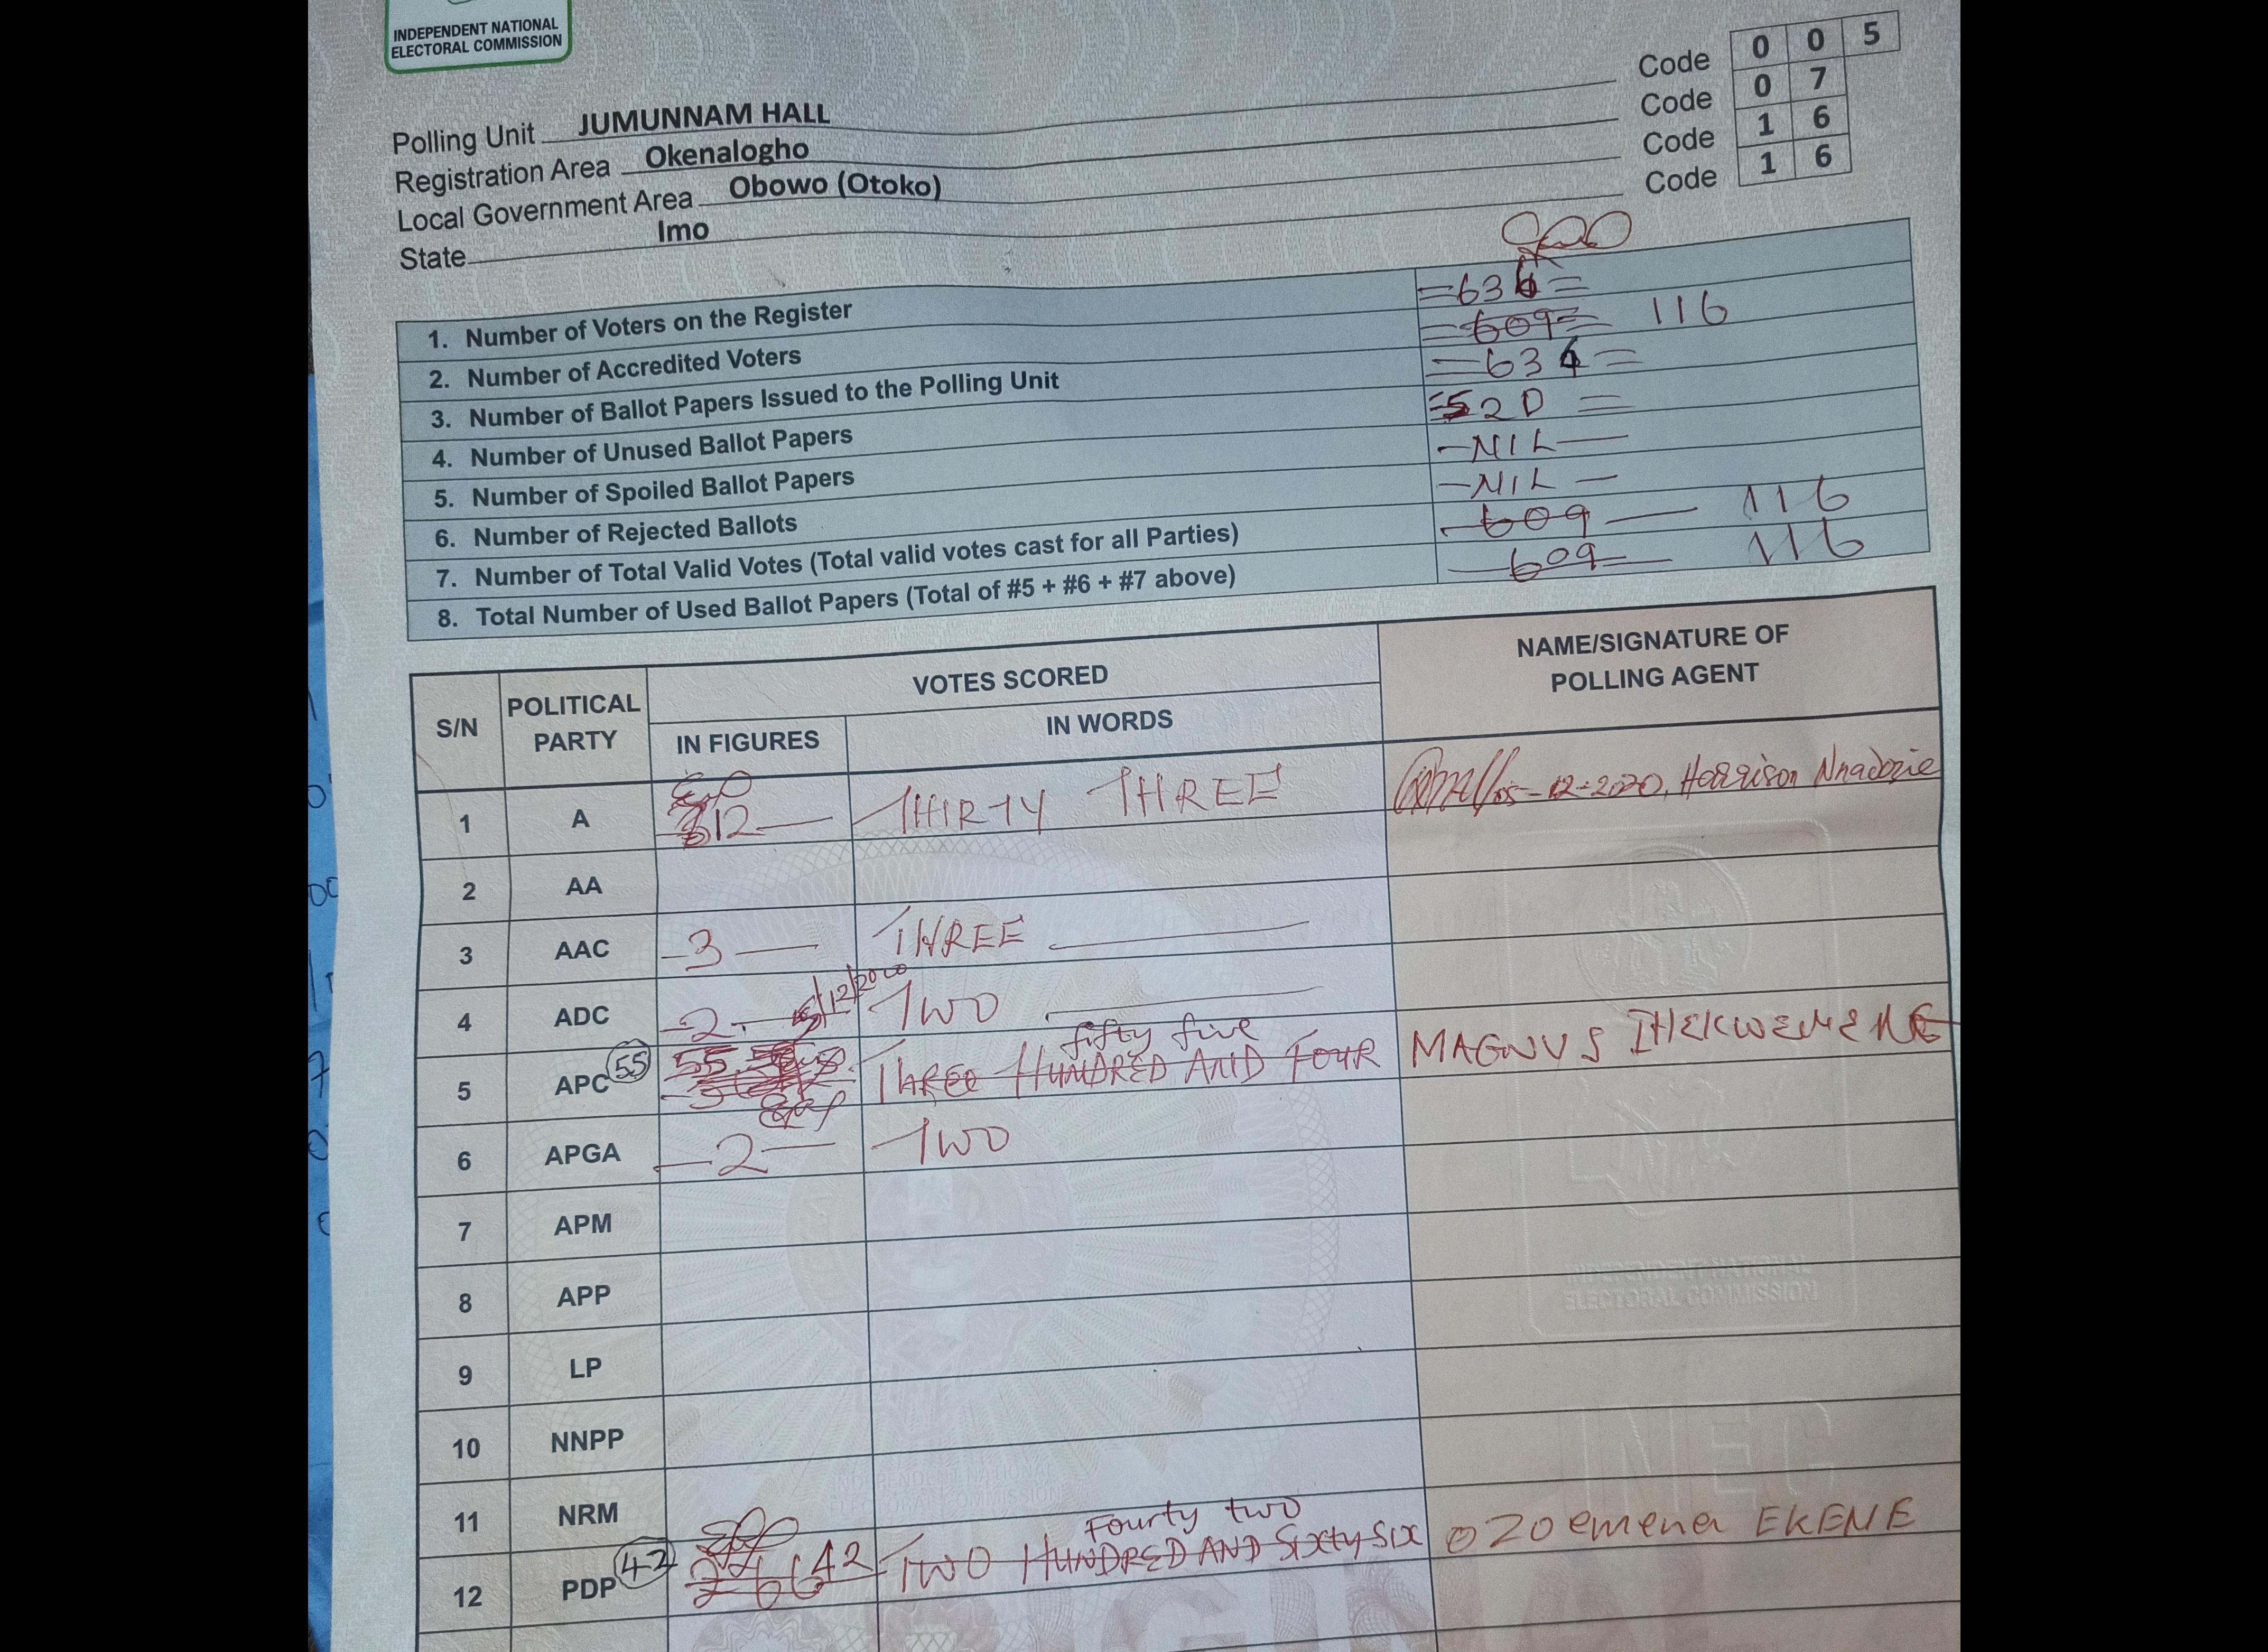 INDEPENDENT NATIONAL
ELECTORAL COMMISSION
Polling Unit JUMUNNAM HALL Code 0 0 5
Registration Area Okenalogho Code 0 7
Local Government Area Obowo (Otoko) Code 1 6
State Imo Code 1 6
1. Number of Voters on the Register =636=
2. Number of Accredited Voters =609= 116
3. Number of Ballot Papers Issued to the Polling Unit =636=
4. Number of Unused Ballot Papers =520=
5. Number of Spoiled Ballot Papers -NIL-
6. Number of Rejected Ballots -NIL-
7. Number of Total Valid Votes (Total valid votes cast for all Parties) -609- 116
8. Total Number of Used Ballot Papers (Total of #5 + #6 + #7 above) -609- 116
S/N POLITICAL PARTY VOTES SCORED NAME/SIGNATURE OF POLLING AGENT
IN FIGURES IN WORDS
1 A 12 THIRTY THREE 05-12-2020, Harrison Nnadozie
2 AA
3 AAC -3- THREE
4 ADC -2- TWO
5/12/2020
fifty five
5 APC 55 55 THREE HUNDRED AND FOUR MAGNUS IHEKWEMENE
6 APGA -2- TWO
7 APM
8 APP
9 LP
10 NNPP
11 NRM
Fourty two
12 PDP 42 266 42 TWO HUNDRED AND Sixty Six OZOemena EKENE
INDEPENDENT NATIONAL
ELECTORAL COMMISSION